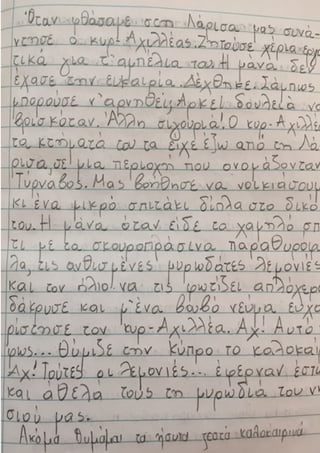 Όταν φθάσαμε στη Λάρισα μας συνά-
ντησε ο κυρ-Αχιλλέας. Ζητούσε χέρια εργα
τικά για τ' αμπέλια του. Η μάνα δεν
έχασε την ευκαιρία. Δέχθηκε. Σάμπως
μπορούσε ν' αρνηθεί; Αρκεί δουλειά να
βρισκόταν. Άλλη σιγουριά! Ο κυρ-Αχιλλέ
τα κτήματά του τα είχε έξω από τη Λά
ρισα, σ' μια περιοχή που ονομάζονταν
Τύρναβος. Μας βοήθησε να νοικιάσουμ
κι ένα μικρό σπιτάκι δίπλα στο δικό
του. Η μάνα όταν είδε το χαμηλό σπ
τι με τα σκουροπράσινα παράθυρου
λα, τις ανθισμένες μυρωδάτες λεμονιές
και τον ήλιο! να τις φωτίζει απλόχερα
δάκρυσε και μ' ένα βουβό νεύμα ευχα
ρίστησε τον κυρ-Αχιλλέα. Αχ! Αυτό
φως... Θύμιζε την Κύπρο το καλοκαί
Αχ! Τούτες οι λεμονιές... έφερναν έστω
και άθελά τους τη μυρωδιά του ν
σιού μας.
Ακόμα θυμάμαι τα ήσυχα ζεστά καλοκαιρινά